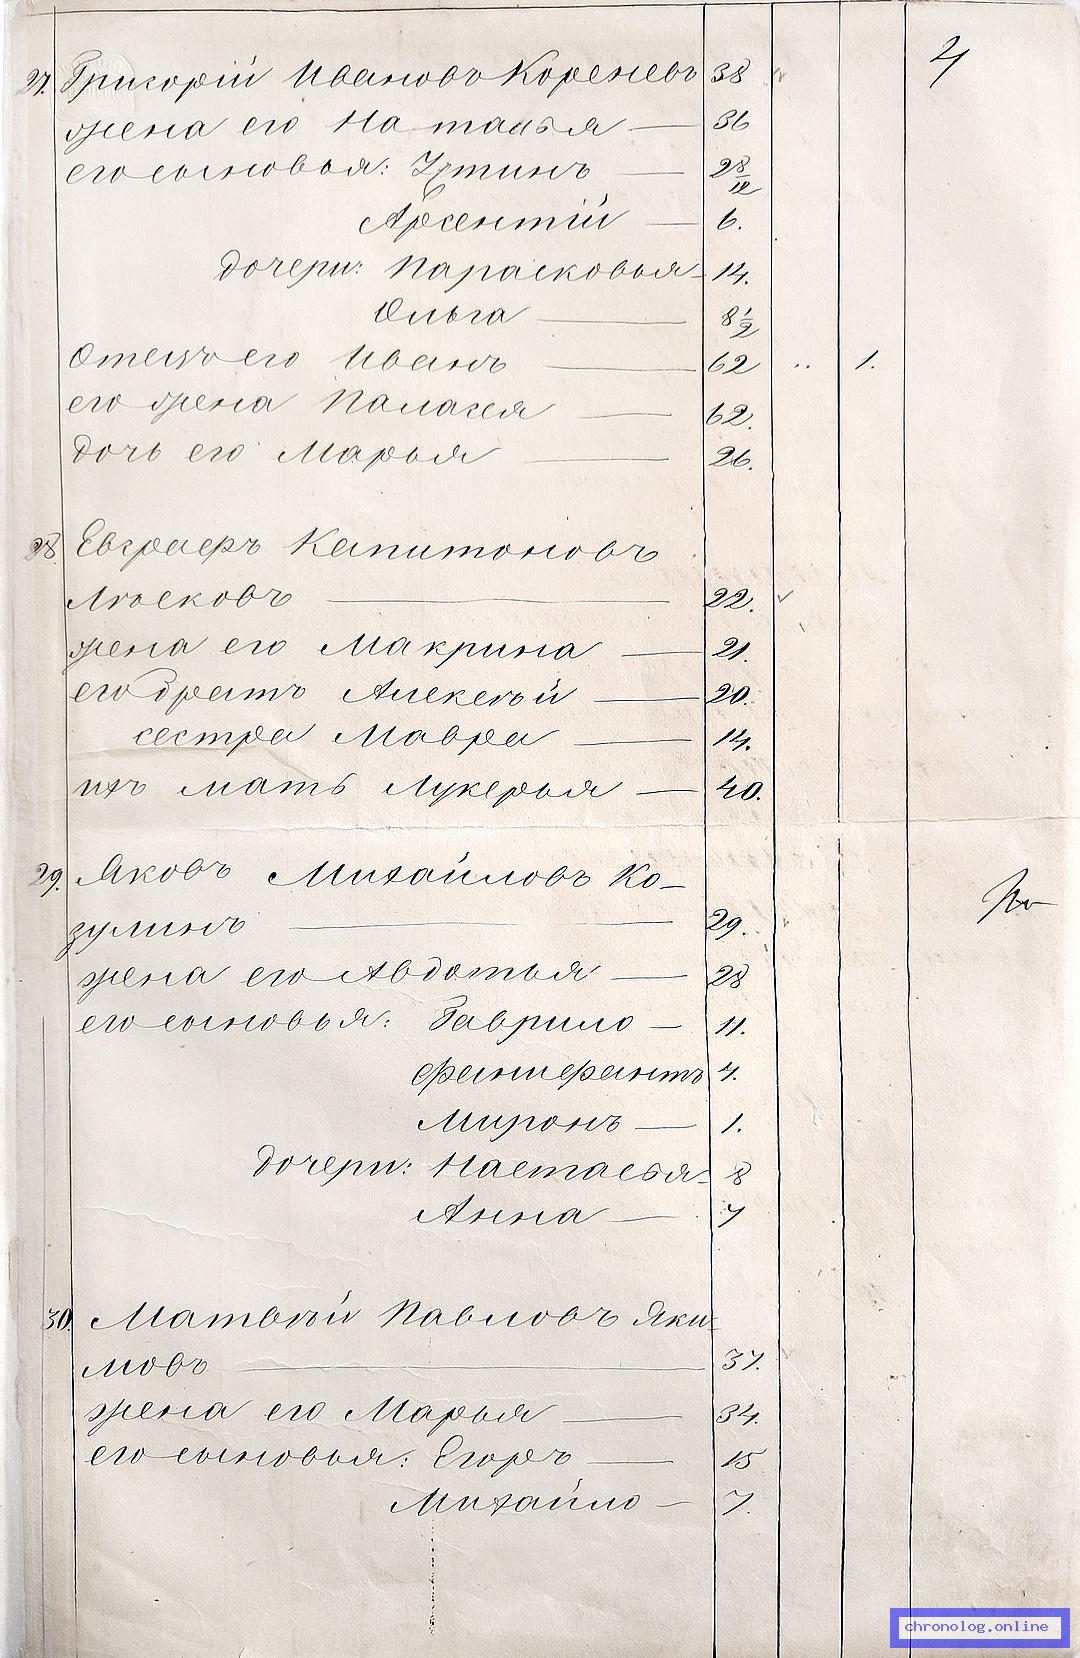 4
27. Григорій Ивановъ Кореневъ 38
жена его Наталья — 36
его сыновья: Устинъ — 28/12
Арсентій — 6.
дочери: Парасковья - 14.
Ольга — 8 1/2
Отецъ его Иванъ — 62 .. 1.
его жена Палагея — 62.
дочь его Марья — 26.
28. Евграфъ Капитоновъ
Лысковъ — 22.
жена его Макрина — 21.
его братъ Алексѣй — 20.
сестра Мавра — 14.
ихъ мать Лукерья — 40.
29. Яковъ Михайловъ Ко-
зулинъ — 29.
жена его Авдотья — 28
его сыновья: Гаврило — 11.
Ферапонтъ 4.
Миронъ — 1.
дочери: Настасья - 8
Анна — 7
30. Матвѣй Павловъ Яки-
мовъ — 37.
жена его Марья — 34.
его сыновья: Егоръ — 15
Михайло — 7.
chronolog.online